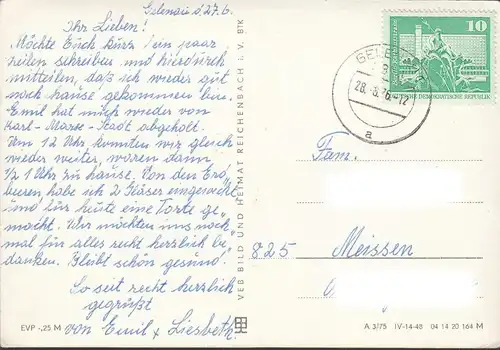 Gelenau d 27.6.
Ihr Lieben!
Möchte Euch kurz ein paar
Zeilen schreiben und hierdurch
mitteilen, daß ich wieder gut
nach hause gekommen bin.
Emil hat mich wieder von
Karl-Marx-Stadt abgeholt.
Um 12 Uhr konnten wir gleich
wieder weiter, waren dann
½ 1 Uhr zu hause. Von den Erd
beeren habe ich 2 Gläser eingeweckt
und für heute eine Torte ge„
macht. Wir möchten uns noch„
mal für alles recht herzlich be„
danken. Bleibt schön gesund.
So seit recht herzlich
gegrüßt
von Emil + Liesbeth.
EVP -,25 M
VEB BILD UND HEIMAT REICHENBACH i. V. BTK
10
DEMOKRATISCHE REPUBLIK
28.-6.76-12
a
Fam.
825 Meissen
A 3/75 IV-14-48 04 14 20 164 M